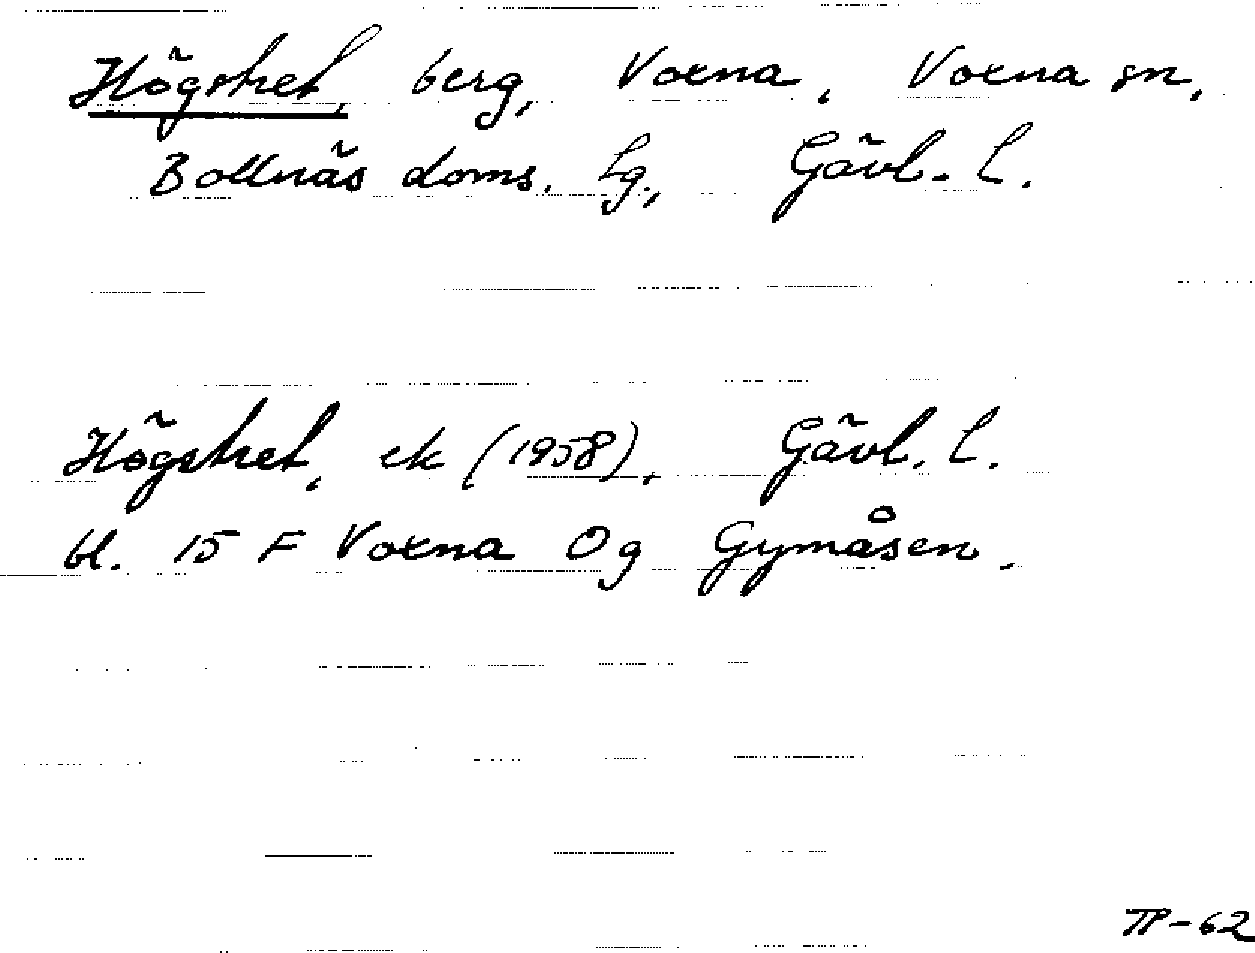 Högstret, berg, Voxna, Voxna sn,
Bollnäs doms. lg., Gävl. l.
Högstret, ek (1958), Gävl. l.
bl. 15 F Voxna Og Gymåsen.
TP-62